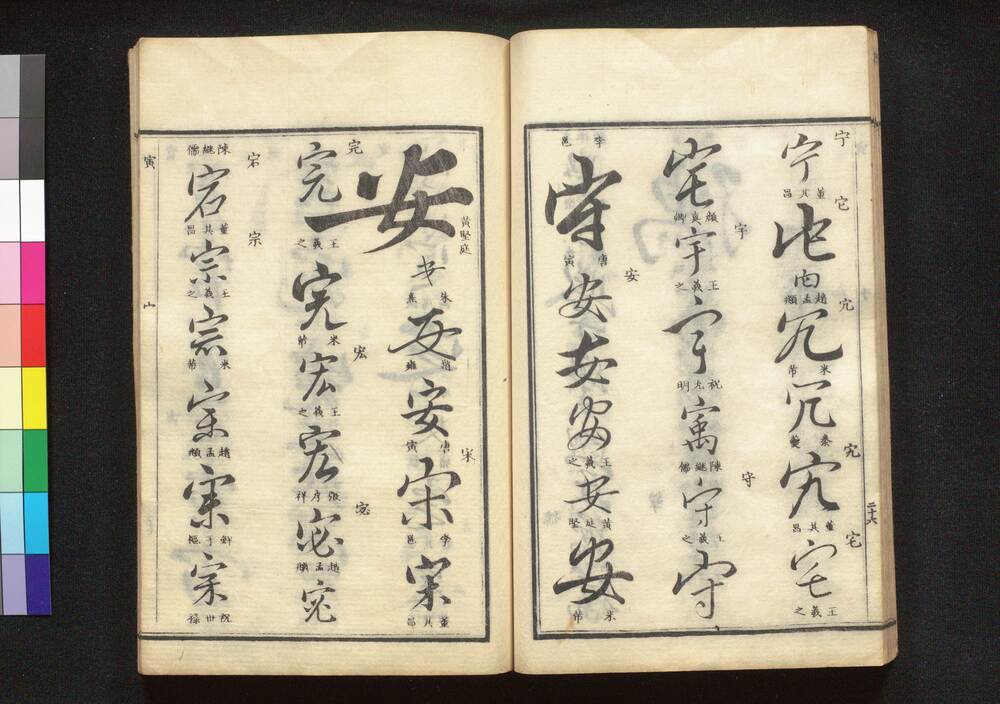 宁
宁
董其昌
它
它
趙孟頫
宂
冗
米芾
冗
秦夔
宄
宄
董其昌
宅
宅
王羲之
二十六
宅
顏真卿
宇
宇
王羲之
宇
祝允明
寓
陳繼儒
守
守
王羲之
守
李邕
守
唐寅
安
安
安
安
王羲之
安
黃庭堅
安
米芾
安
黃堅庭
安
朱熹
安
趙雍
安
唐寅
宋
宋
李邕
宋
董其昌
完
完
王羲之
完
米芾
宏
宏
王羲之
宏
宓
宓
趙孟頫
宓
宕
陳繼儒
宕
董其昌
宗
宗
王羲之
宗
米芾
宗
趙孟頫
宗
鮮于樞
宗
祝世祿
寅
山